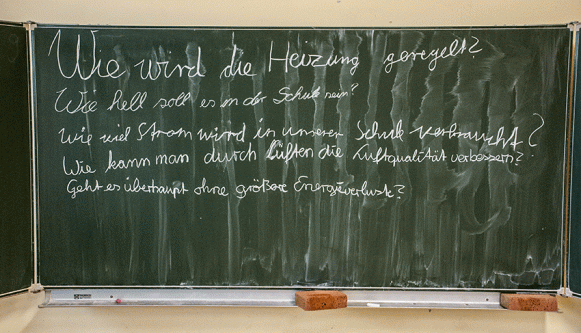 Wie wird die Heizung geregelt?
Wie hell soll es in der Schule sein?
Wie viel Strom wird in unserer Schule verbraucht?
Wie kann man durch lüften die Luftqualität verbessern?
Geht es überhaupt ohne größere Energieverluste?